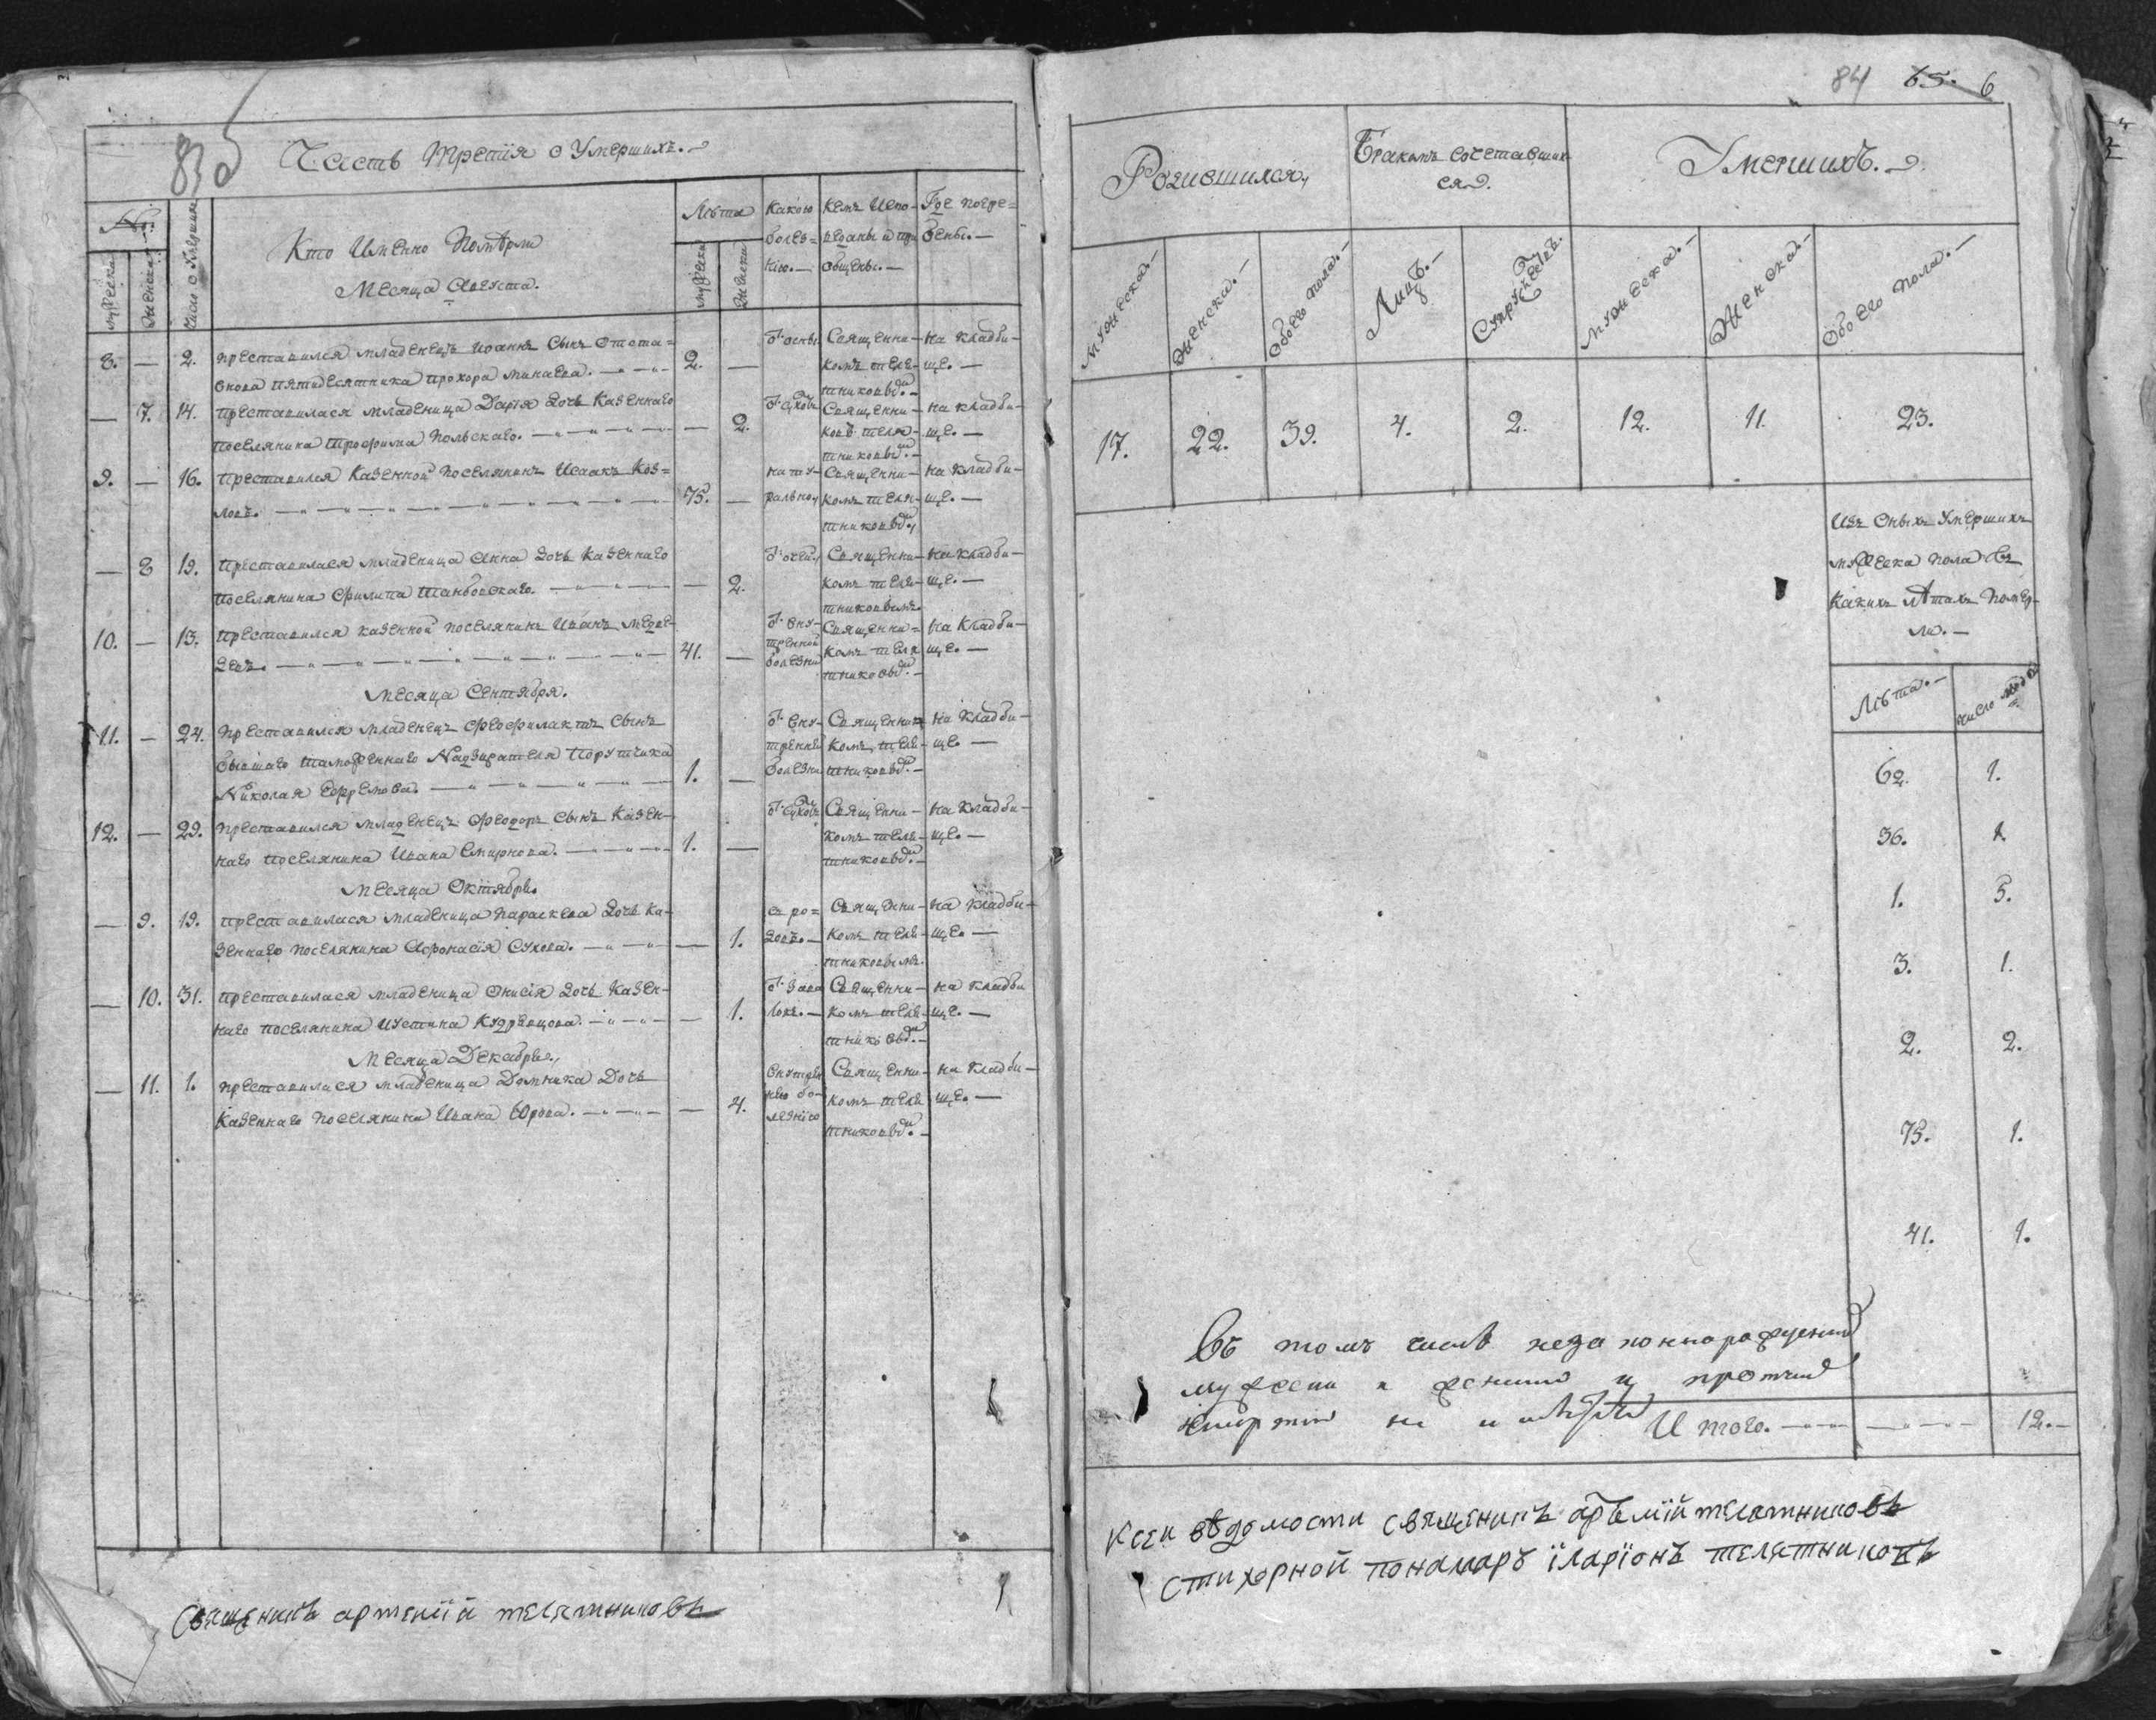 83об
Часть третія о Умершихъ.
№.
мужеска
женска
Число о Умершихъ
Кто Именно Померли
Месяца Августа.
Лѣта
мужеска
женска
Какою болез=
нію.
Кемъ Испо-
веданы и при
общены.
Где погре=
бены.
8. — 2. преставился младенецъ Иоаннъ Сынъ Отста=
внова пятидесятника Прохора Минаева. 2. —
Священни-
комъ Теле-
тниковы́м. на кладби-
ще.
— 7. 14. преставилася младеница Дарія дочь Казеннаго
поселянина Трофима Польскаго. — 2.
Священни-
комъ Теля-
тниковы́м. на кладби-
ще.
9. — 16. преставился Казенной поселянинъ Исаакъ Коз=
ловъ. 75. —
нату-
рально, Священни-
комъ Теля-
тниковым, на кладби-
ще.
— 8 19. преставилася младеница Анна дочь Казеннаго
поселянина Филипа Танбовскаго. — 2.
Священни-
комъ Теле-
тниковымъ. на кладби-
ще.
10. — 13. преставился казенной поселянинъ Иванъ Медве-
девъ. 41. —
вну-
тренной
болезни Священни=
комъ Теля
тниковым. на кладби-
ще.
Месяца Сентября.
11. — 24. преставился младенецъ Феофилактъ Сынъ
бывшаго таможеннаго Надзирателя порутчика
Николая Ефремова. 1. —
вну-
тренней
болезни Священни
комъ Теле-
тниковым. на кладби-
ще.
12. — 29. преставился младенецъ Феодоръ Сынъ Казен-
наго поселянина Ивана Смирнова. 1. —
Священни-
комъ Теле-
тниковым. на кладби-
ще.
Месяца Октября.
— 9. 19. преставилася младеница Параскева дочь Ка-
зеннаго поселянина Афонасія Сухова. — 1.
съ ро=
довъ. Священни-
комъ Теле-
тниковымъ. на кладби-
ще.
— 10. 31. преставилася младеница Онисія дочь Казен-
наго поселянина Иустина Кудрявцова. — 1.
Священни-
комъ Теле-
тниковым. на кладби
ще.
Месяца Декабря.
— 11. 1. преставилася младеница Домника Дочь
Казеннаго поселянина Ивана Юрова. — 4.
внутрен
нею бо-
лезнію Священни-
комъ Теле
тниковым. на кладби-
ще.
Священикъ артемій телятниковъ
84 65. 6
Родившихся,
Бракомъ сочетавших
ся.
Умерших.
мужеска.
женска.
Обоего пола.
Лицъ.
Супружествъ.
мужеска.
Женска.
Обоего пола.
17. 22. 39. 4. 2. 12. 11. 23.
Изъ Оныхъ Умершихъ
мужеска пола въ
какихъ лѣтахъ помер-
ли.
Лѣта.
число
62. 1.
36. 1.
1. 5.
3. 1.
2. 2.
75. 1.
41. 1.
Въ томъ числѣ незаконнорожденни
мужески и женски и протчии
Итого. 12.
К сеи вѣдомости священикъ артемій телятниковъ
Стихорной понамаръ їларіонъ телятниковъ